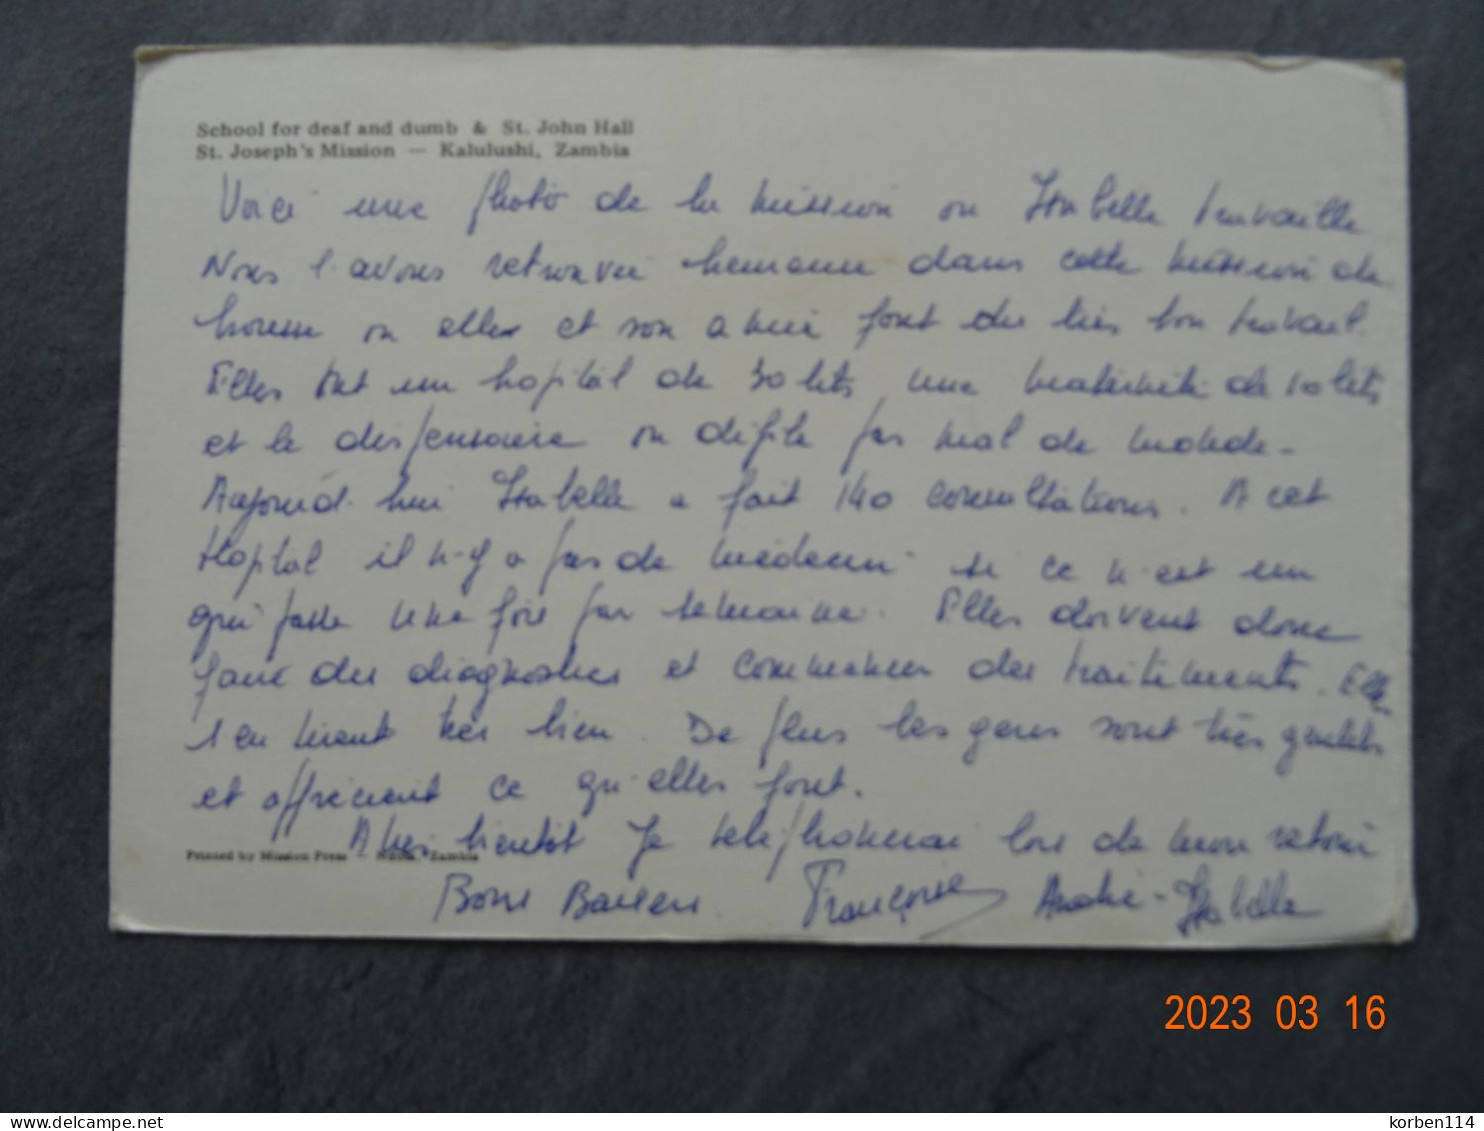 School for deaf and dumb & St. John Hall
St. Joseph's Mission — Kalulushi, Zambia
Voici une photo de la mission ou Isabelle travaille
Nous l'avons retrouvée dans cette mission de
brousse ou elles et son amie font du très bon travail.
Elles ont un hopital de 30 lits, une maternité de 10 lits
et le dispensaire ou défile pas mal de monde -
Aujourd'hui Isabelle a fait 140 consultations. A cet
Hopital il n-y a pas de médecin si ce n'est un
qui passe une fois par semaine. Elles doivent donc
faire des diagnostics et commencer des traitements. Elles
s'en tirent très bien. De plus les gens sont très gentils
et apprécient ce qu'elles font.
A très bientôt Je téléphonerai lors de mon retour
Printed by Mission Press Ndola, Zambia
Bons Baisers Françoise André - Isabelle
2023 03 16
korben114